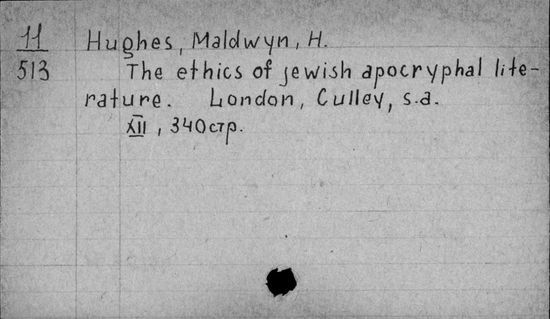 11 Hughes, Maldwyn, H.
513 The ethics of jewish apocryphal lite-
rature. London, Culley, s.a.
XII, 340 стр.